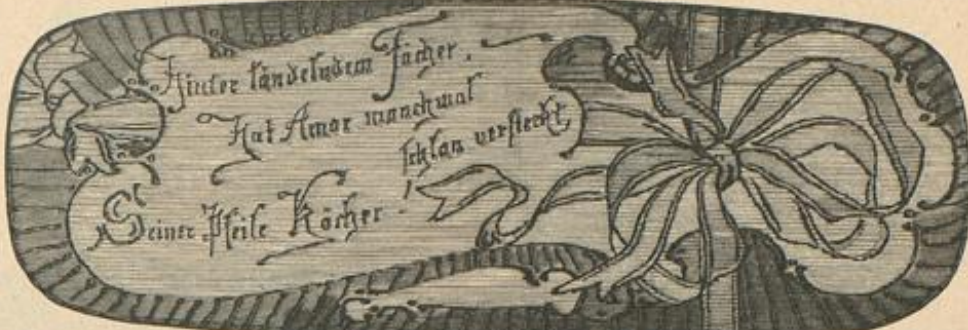 Hinter tändelndem Fächer,
Hat Amor manchmal
schlau versteckt,
Seiner Pfeile Köcher!